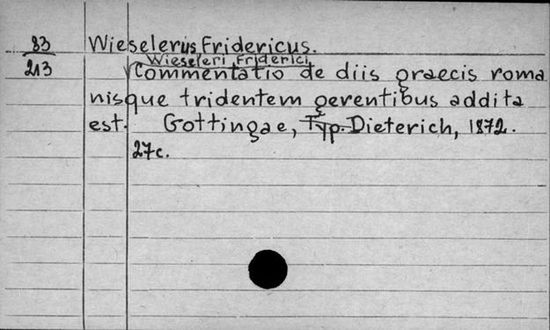 83 Wieselerus Fridericus.
Wieseleri Friderici
213 Commentatio de diis graecis roma
nisque tridentem gerentibus addita
est. Gottingae, Typ. Dieterich, 1872.
27c.